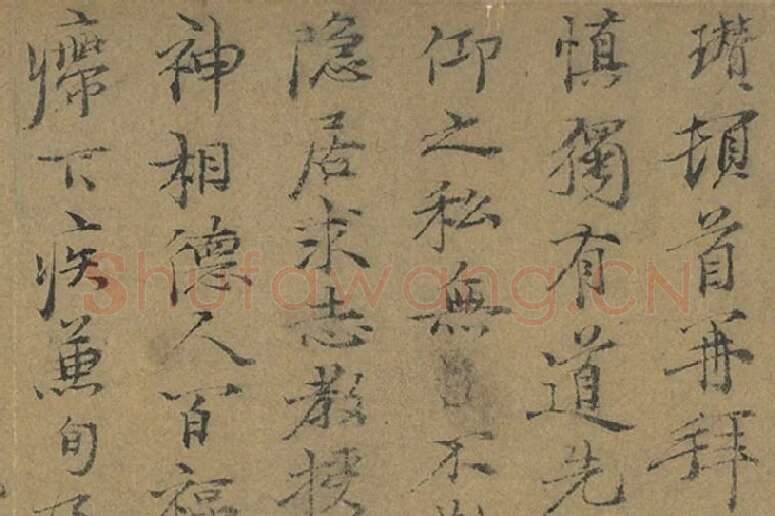 瓚頓首再拜
慎獨有道先
仰之私無日不
隐居求志教授
神相德人百福
瘵下疾薰旬
Shufawang.CN